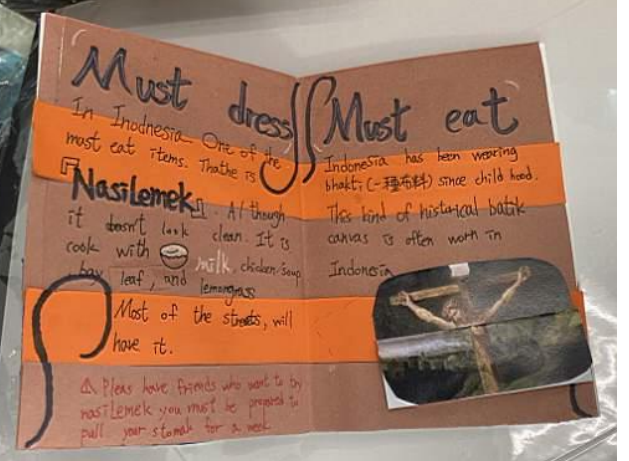 Must dress
In Inodnesia One of the
must eat items. Thathe is
「Nasilemek」. Al though
it doesn't look clean. It is
cook with milk, chicken soup
, bay leaf, and lemongrass
Most of the streets, will
have it.
⚠ Pleas have friends who want to try
nasilemek you must be prepared to
pull your stomah for a week
Must eat
Indonesia has been wearing
bhakti (一種布料) since child hood.
This kind of historical batik
canvas is often worn in
Indonesia